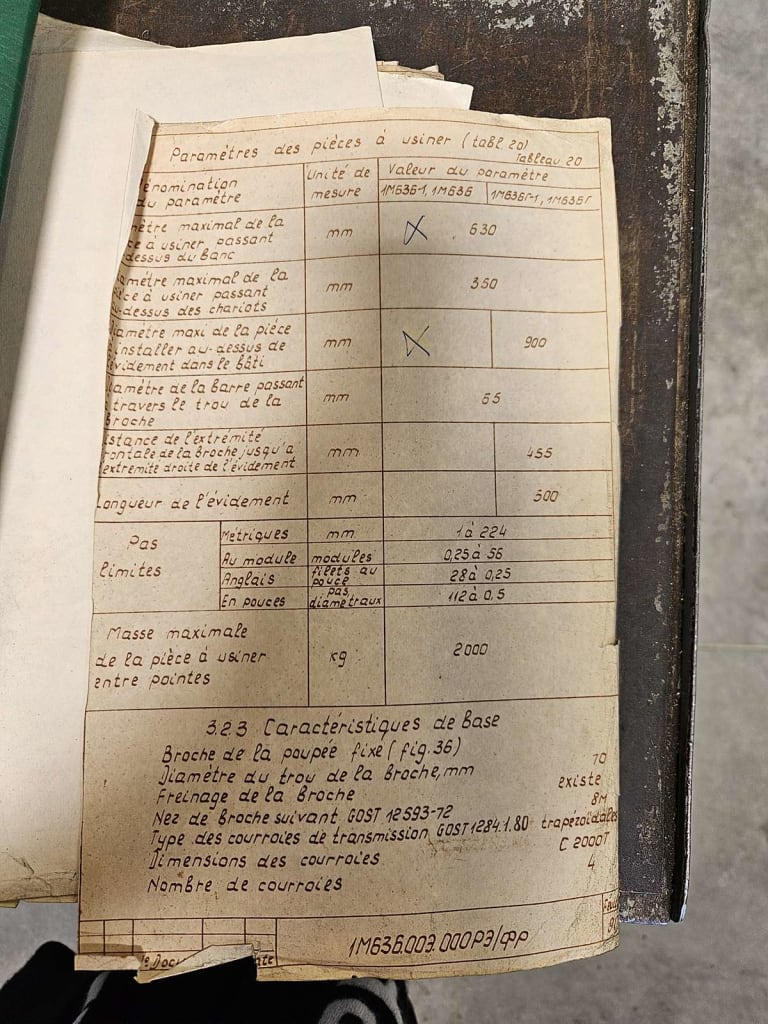 Paramètres des pièces à usiner (tabl 20)
Tableau 20
énomination
du paramètre
Unité de
mesure
Valeur du paramètre
1М636-1, 1М636
1М636Г-1, 1М636Г
mètre maximal de la
ce à usiner passant
dessus du banc
mm
630
amètre maximal de la
ièce à usiner passant
u-dessus des chariots
mm
350
iamètre maxi de la pièce
installer au-dessus de
évidement dans le bâti
mm
900
iamètre de la barre passant
travers le trou de la
broche
mm
65
istance de l'extrémité
rontale de la broche jusqu'a
extrémité droite de l'évidement
mm
455
Longueur de l'évidement
mm
500
Pas
limites
Métriques
mm
1 à 224
Au module
modules
0,25 à 56
Anglais
filets au
pouce
28 à 0,25
En pouces
pas
diamétraux
112 à 0,5
Masse maximale
de la pièce à usiner
entre pointes
kg
2000
3.2.3 Caractéristiques de base
Broche de la poupée fixe (fig. 36)
Diamètre du trou de la broche, mm 70
Freinage de la broche existe
Nez de broche suivant GOST 12593-72 8М
Type des courroies de transmission GOST 1284.1.80 trapézoïdales
Dimensions des courroies C 2000T
Nombre de courroies 4
1М636.003.000РЭ/ФР